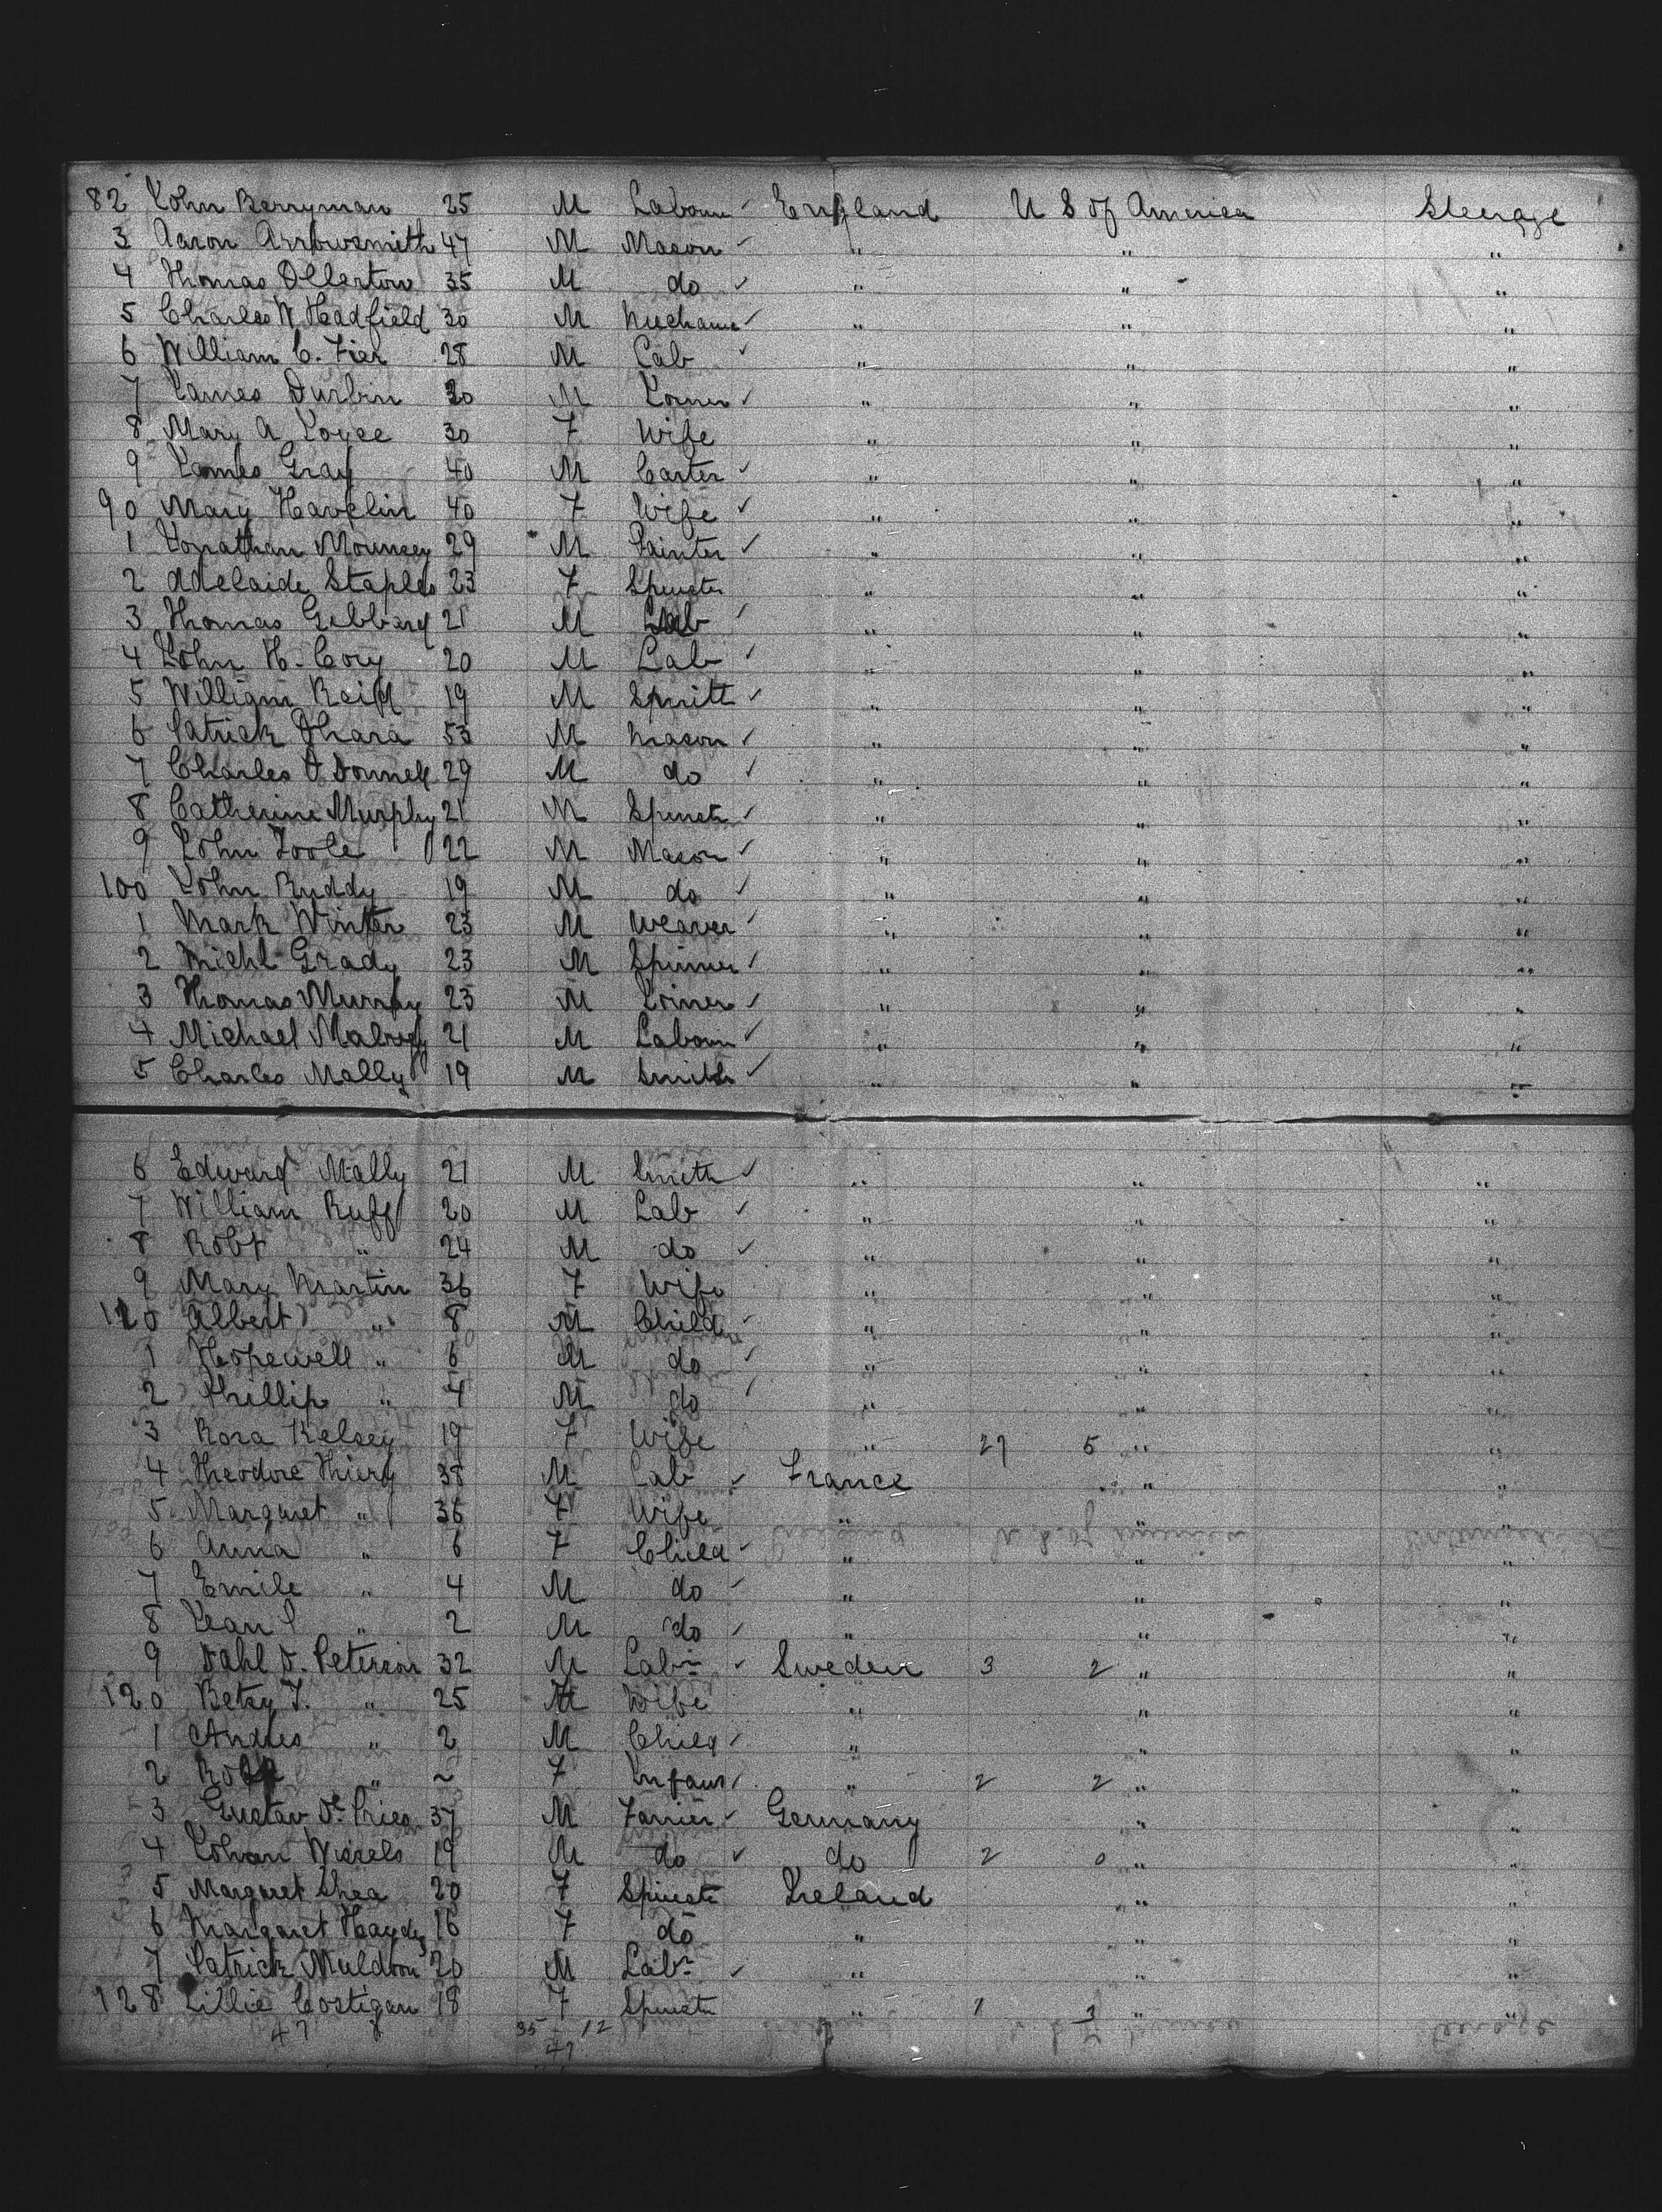 82 John Berryman 25 M Labour England U S of America Steerage
3 Aaron Arrowsmith 47 M Mason " " "
4 Thomas Ollerton 35 M do " " "
5 Charles W Hadfield 30 M Mechanic " " "
6 William C. 28 M Lab " " "
7 James Durbin 30 M Joiner " " "
8 Mary A Joyce 30 F Wife " " "
9 James Gray 40 M Carter " " "
90 Mary Havelin 40 F Wife " " "
1 Jonathan Mouncey 29 M Painter " " "
2 Adelaide Staples 23 F Spinster " " "
3 Thomas Gibbard 21 M Lab " " "
4 John H. Cory 20 M Lab " " "
5 William Reid 19 M " " "
6 Patrick Ohara 53 M Mason " " "
7 Charles O Donnell 29 M do " " "
8 Catherine Murphy 21 M Spinstr " " "
9 John Toole 22 M Mason " " "
100 John Ruddy 19 M do " " "
1 Mark Winter 23 M Weaver " " "
2 Michl Grady 23 M Spinner " " "
3 Thomas Murphy 23 M Joiner " " "
4 Michael 21 M Labour " " "
5 Charles Mally 19 M Smith " " "
6 Edward Mally 21 M Smith " " "
7 William Ruff 20 M Lab " " "
8 Robt " 24 M do " " "
9 Mary Martin 36 F Wife " " "
110 Albert " 8 M Child " " "
1 Hopewell " 6 M do " " "
2 Phillip " 4 M do " " "
3 Rosa Kelsey 19 F Wife " 27 5 " "
4 Theodore Thiery 38 M Lab France " "
5 Margaret " 36 F Wife " " "
6 Anna " 6 F Child " " "
7 Emile " 4 M do " " "
8 Jean P " 2 M do " " "
9 Dahl D. Peterson 32 M Labr Sweden 3 2 " "
120 Betsy J. " 25 M Wife " " "
1 Andres " 2 M Child " " "
2 " ~ F Infant " 2 2 " "
3 Gustav De Pries 37 M Farrier Germany " "
4 Johan 19 M do do 2 0 " "
5 Margaret Shea 20 F Spinstr Ireland " "
6 Margaret Hayden 16 F do " " "
7 Patrick Muldoon 20 M Labr " " "
128 Lillie Costigan 18 F Spinstr " 1 3 " "
47 35 12
47